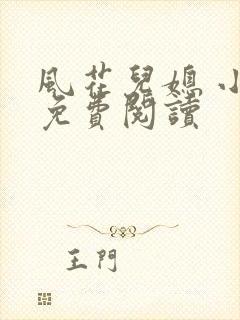 風花兒媳小
免費閱讀
王門